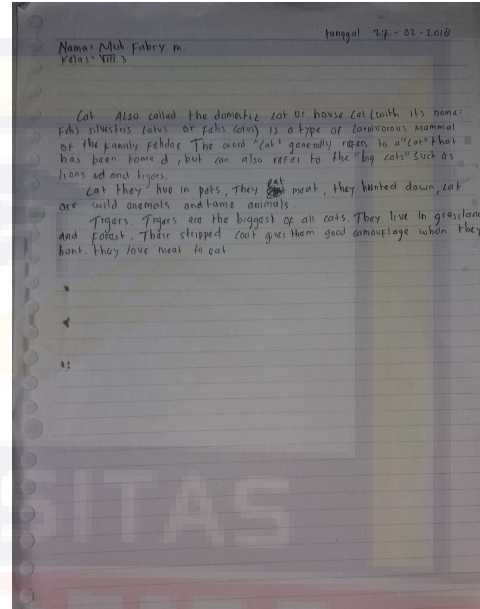 tanggal 27 - 02 - 2018
Nama: Muh Fabry m.
Kelas: VIII 3
Cat Also called the domestic cat or house cat (with its name:
Felis silvestris catus or Felis catus) is a type of carnivorous mammal
of the family Felidae The word "cat" generally refers to a "cat" that
has been tame d, but can also refer to the "big cats" such as
lions ad and tigers.
Cat they live in pets, They eat meat, they hunted down, cat
are wild anemals and tame animals.
Tigers. Tigers are the biggest of all cats. They live In grassland
and forest. Their stripped coat gives them good camouflage when they
hunt. they love meat to eat
SITAS